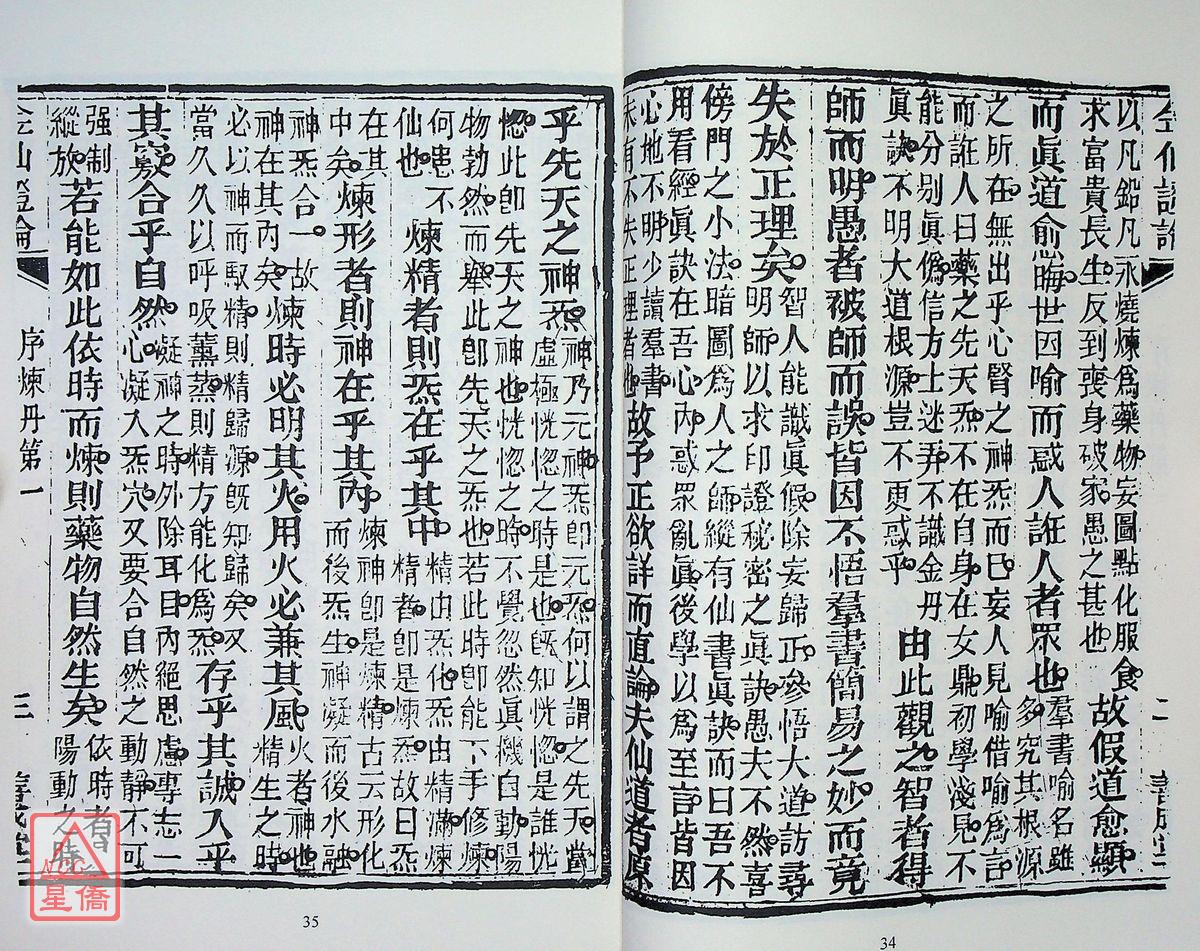 金仙證論
二
善成堂
以凡鉛凡汞燒煉為藥物妄圖點化服食
求富貴長生反到喪身破家愚之甚也
故假道愈顯
而眞道愈晦世因喻而惑人誑人者眾也
羣書喻名雖
多究其根源
之所在無出乎心腎之神炁而已妄人見喻借喻為言
而誑人曰藥之先天炁不在自身在女鼎初學淺見不
能分別眞偽信方士迷弄不識金丹
眞訣不明大道根源豈不更惑乎
由此觀之智者得
師而明愚者被師而誤皆因不悟羣書簡易之妙而竟
失於正理矣
智人能識眞假除妄歸正參悟大道訪尋
明師以求印證秘密之眞訣愚夫不然喜
傍門之小法暗圖為人之師縱有仙書眞訣而曰吾不
用看經眞訣在吾心內惑眾亂眞後學以為至言皆因
心地不明少讀羣書
未有不失正理者也
故予正欲詳而直論夫仙道者原
34
乎先天之神炁
神乃元神炁卽元炁何以謂之先天當
虛極恍惚之時是也旣知恍惚是誰恍
惚此卽先天之神也恍惚之時不覺忽然眞機自動陽
物勃然而舉此卽先天之炁也若此時卽能下手修煉
何患不
仙也
煉精者則炁在乎其中
精由炁化炁由精滿煉
精者卽是煉炁故曰炁
在其
中矣
煉形者則神在乎其內
煉神卽是煉精古云形化
而後炁生神凝而後水融
神炁合一故
神在其內矣
煉時必明其火用火必兼其風
火者神也
精生之時
必以神而馭精則精歸源旣知歸矣又
當久久以呼吸薰蒸則精方能化為炁
存乎其誠入乎
其竅合乎自然
凝神之時外除耳目內絕思慮專志一
心凝入炁穴又要合自然之動靜不可
强制
縱放
若能如此依時而煉則藥物自然生矣
依時者
陽動之時
金仙證論
序煉丹第一
三
善成堂
35
星僑